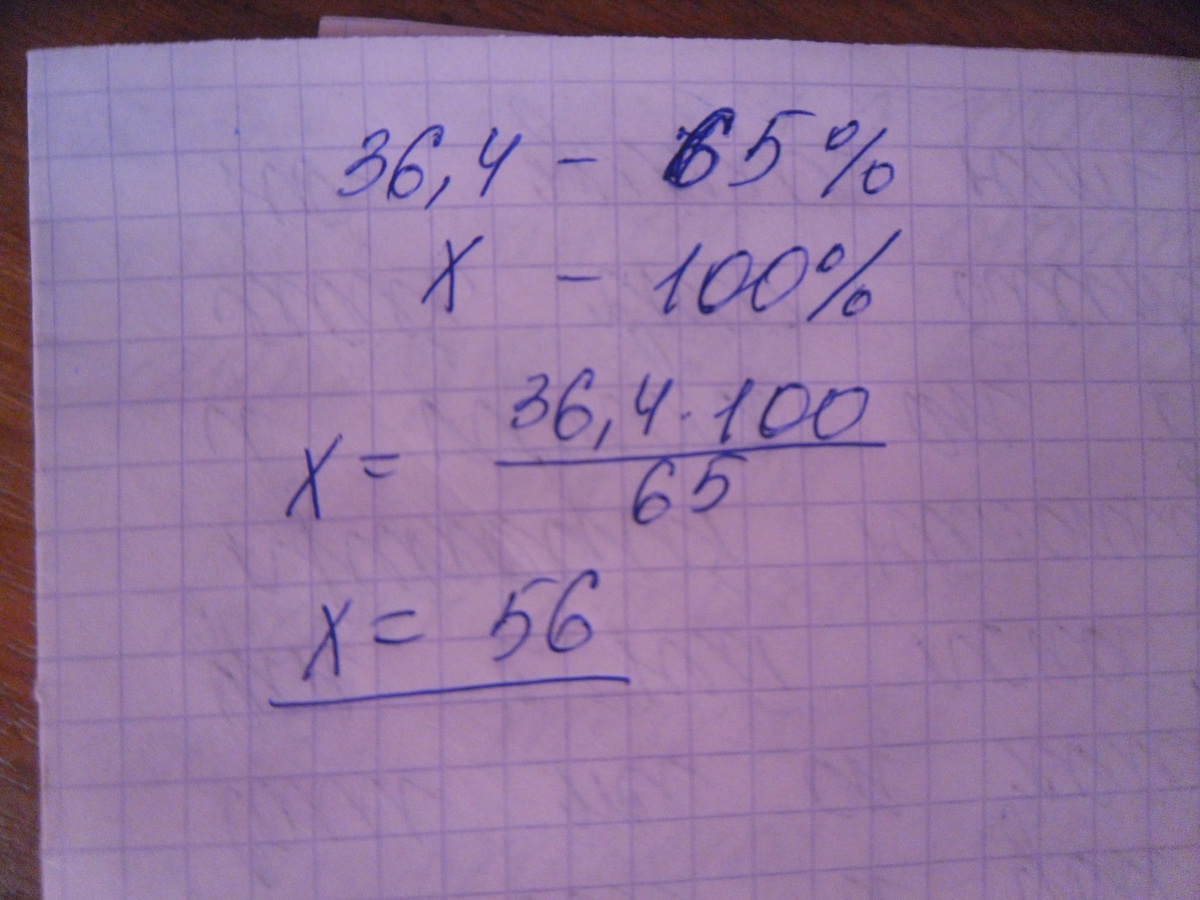 36,4 - 65%
x - 100%
x = 36,4·100 / 65
x = 56